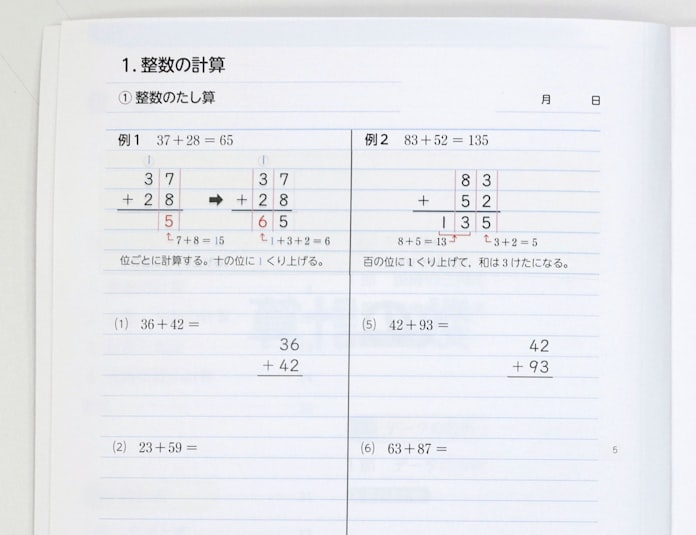 1. 整数の計算
① 整数のたし算
月 日
例1 37＋28＝65
1
37
＋28
5
7＋8＝15
➡
1
37
＋28
65
1＋3＋2＝6
位ごとに計算する。十の位に1くり上げる。
例2 83＋52＝135
83
＋ 52
135
8＋5＝13
3＋2＝5
百の位に1くり上げて，和は3けたになる。
(1) 36＋42＝
36
＋42
(2) 23＋59＝
(5) 42＋93＝
42
＋93
(6) 63＋87＝